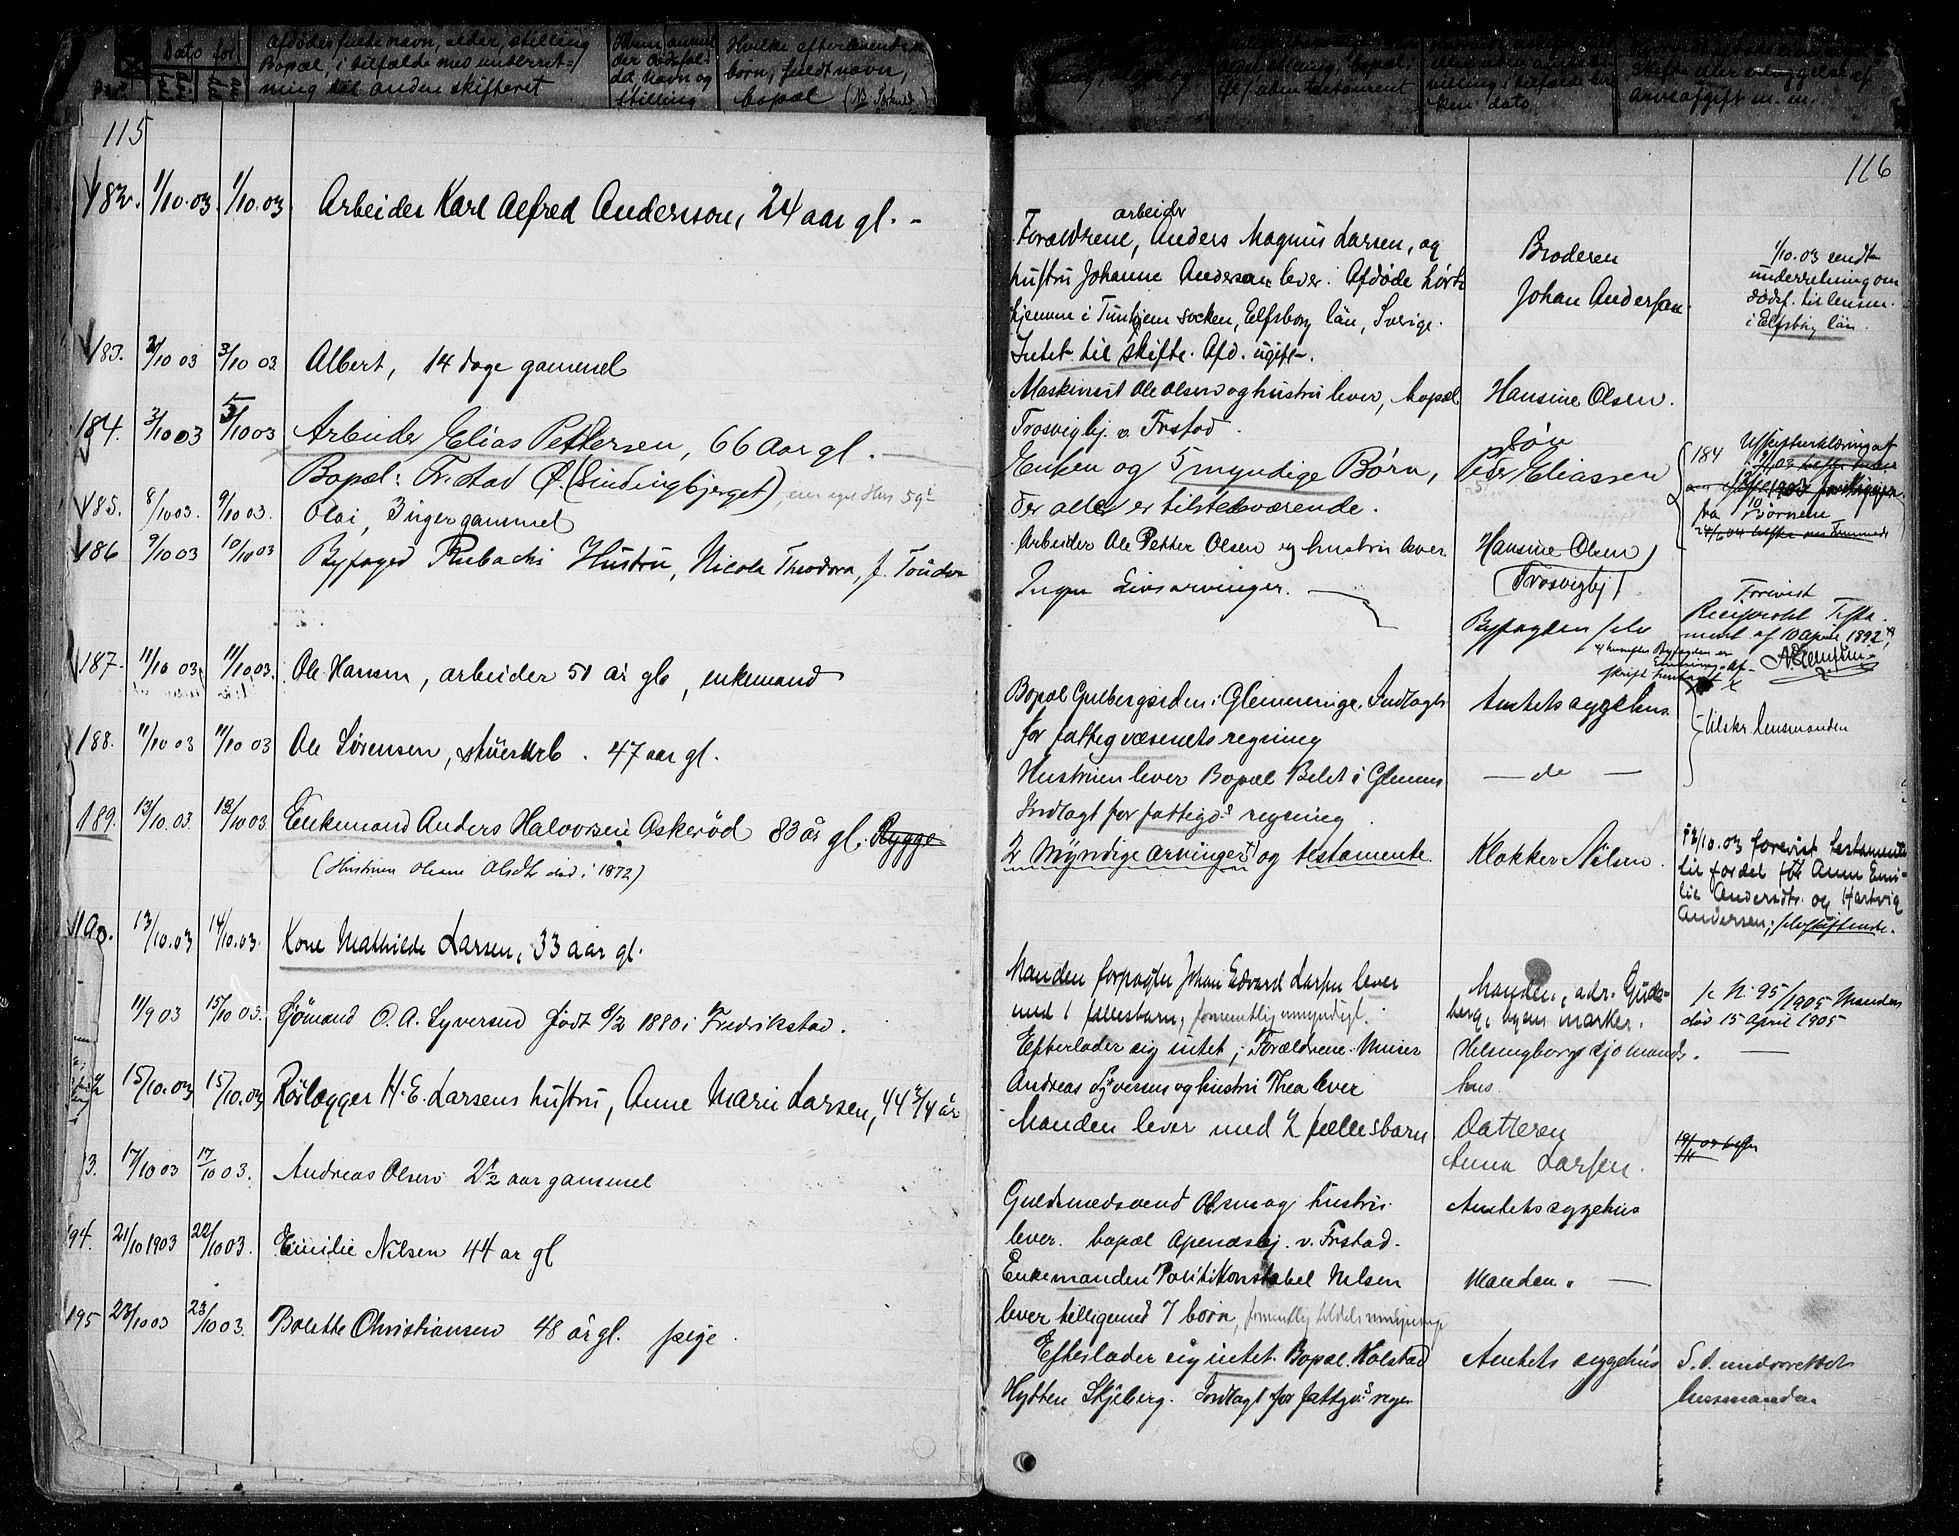 Dato for
afdødes fulde navn, alder, stilling
Bopæl, i tilfælde med underret-
ning til anden skifteret
Hvem anmel
der dødsfal-
det, Navn og
stilling
Hvilke efterlevende
børn, fuldt navn,
bopæl
115
182. 1/10.03 1/10.03. Arbeider Karl Alfred Anderson, 24 aar gl. -
183. 2/10 03 3/10 03. Albert, 14 dage gammel
184. 3/10 03 5/10 03 Arbeider Elias Pettersen, 66 aar gl.
Bopæl: Fr.stad Ø. (Lindingbjerget)
185. 8/10 03. 9/10 03. Olai, 3 uger gammel
186 9/10 03 10/10 03 Byfoged Rubachs Hustru, Nicola Theodora, f. Tonder
187. 11/10 03. 11/10 03. Ole Hansen, arbeider 51 år gl, enkemand
188. 11/10 03 11/10 03 Ole Sørensen, stueskrb. 47 aar gl.
189. 13/10.03. 13/10 03. Enkemand Anders Halvorsen Askerød 83 år gl. Rygge
(Hustruen Oleane Olsdtr død i 1872)
190. 13/10.03 14/10.03. Kone Mathilde Larsen, 33 aar gl.
11/9 03 15/10 03. Sjömand O. A. Syversen født 6/2 1880 i Fredrikstad.
15/10.03 15/10.03 Rørlægger H. E. Larsens hustru, Anne Marie Larsen, 44 3/4 år
3. 17/10 03 17/10 03. Andreas Olsen 2 1/2 aar gammel
94. 21/10 1903 22/10 03. Emilie Nilsen 44 ar gl
195 23/10 03 23/10 03. Bolette Christiansen 48 år gl. pige.
116
arbeider
Forældrene, Anders Magnus Larsen, og
hustru Johanne Anderson lever. Afdøde hørte
hjemme i Tunhjem socken, Elfsborg län, Sverige.
Intet til skifte. Afd. ugift.
Broderen
Johan Anderson.
1/10.03 sendt
underretning om
dødsf. til lensm.
i Elfsborg län.
Maskinist Ole Olsen og hustru lever, bopæl
Trosvigbj. v. Frstad.
Hansine Olsen.
Enken og 5 myndige Børn,
der alle er tilstedeværende.
Søn
Peder Eliassen
184
fra Børnene
Arbeider Ole Petter Olsen og hustru lever
Hansine Olsen
(Trosvigbj)
Ingen Livsarvinger.
Byfogden selv
Forevist
Reciprokt Testa-
ment af 10 April 1892
Bopæl Gulbergseden i Glemminge. Indlagt
for fattigvæsenets regning
Amtets sygehus.
tilskr. lensmanden
Hustruen lever Bopæl Belet i Glemm.
Indlagt for fattigv.s regning.
- do -
2 Myndige arvinger og testamente.
Klokker Nilsen.
12/10.03 forevist testamente
til fordel for Anne Emi-
lie Andersdtr. og Hartvig
Andersen; selvskiftende.
Manden forpagter Johan Edvard Larsen lever
med 1 fællesbarn, formentlig umyndigt.
Manden, adr. Gude-
berg, byens marker.
fr. N. 95/1905 Manden
død 15 April 1905
Efterlader sig intet; Forældrene Murer
Andreas Syversen og hustru Thea lever
Helsingborg sjömands-
hus.
Manden lever med 2 fællesbarn
Datteren
Anna Larsen.
Guldsmedsvend Olsen og hustru
lever. bopæl Apenæsbj. v. Frstad.
Amtets sygehus
Enkemanden Politikonstabel Nilsen
lever tilligemed 7 børn, formentlig tildels umyndige
Manden. -
Efterlader sig intet. Bopæl Kolstad
Hytten Skjeberg. Indlagt for fattigv.s regn
Amtets sygehus
S. d. underrettet
lensmanden